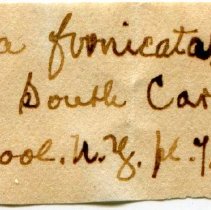 a fornicata
South Car
ool. N.Y. pl. 7